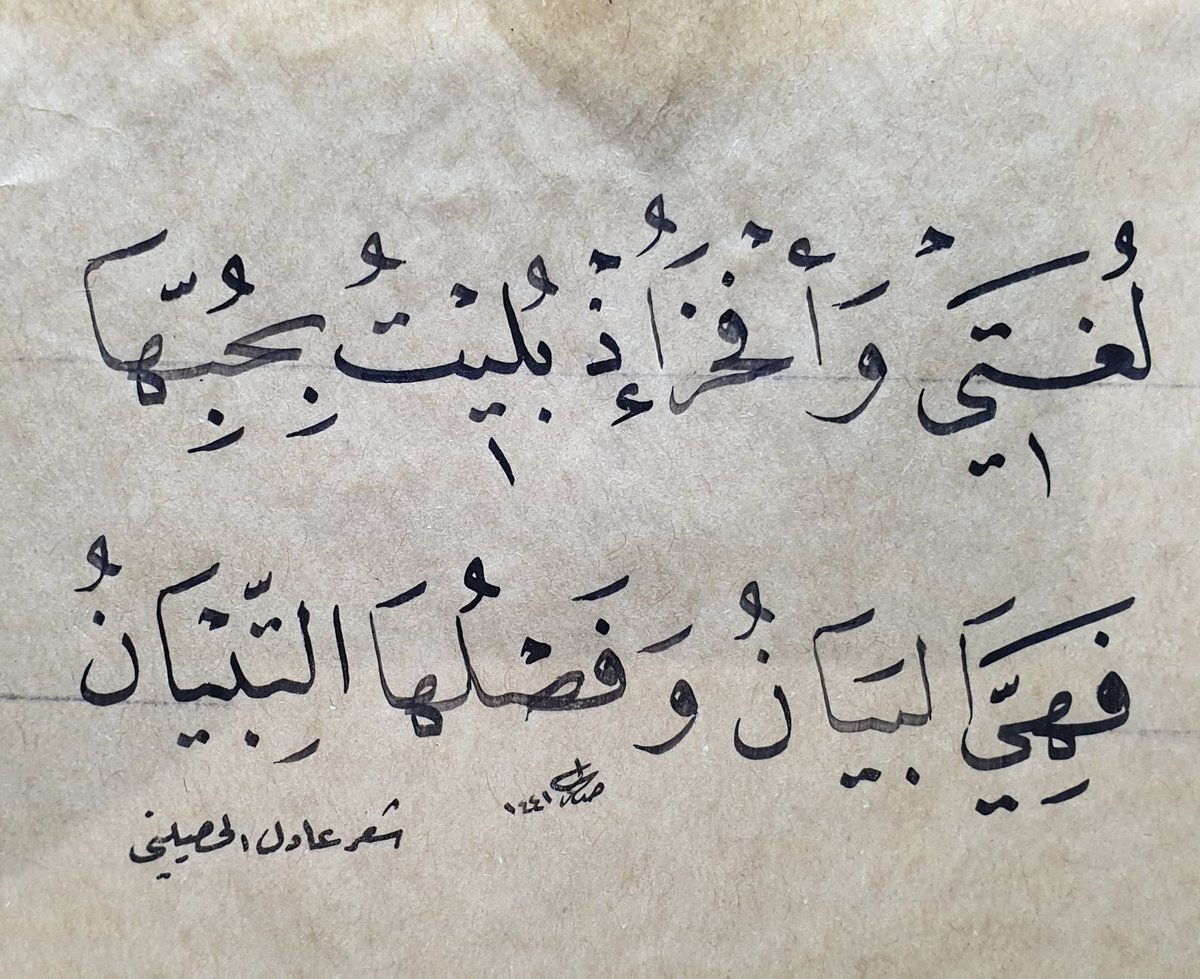 لُغَتِيْ وَأَفْخَرُ إِذْ بُلِيْتُ بِحُبِّهَا
فَهِيَّ البَيَانُ وَفَضْلُهَا التِّبْيَانُ
١٤٤١
شعر عادل الحصيني